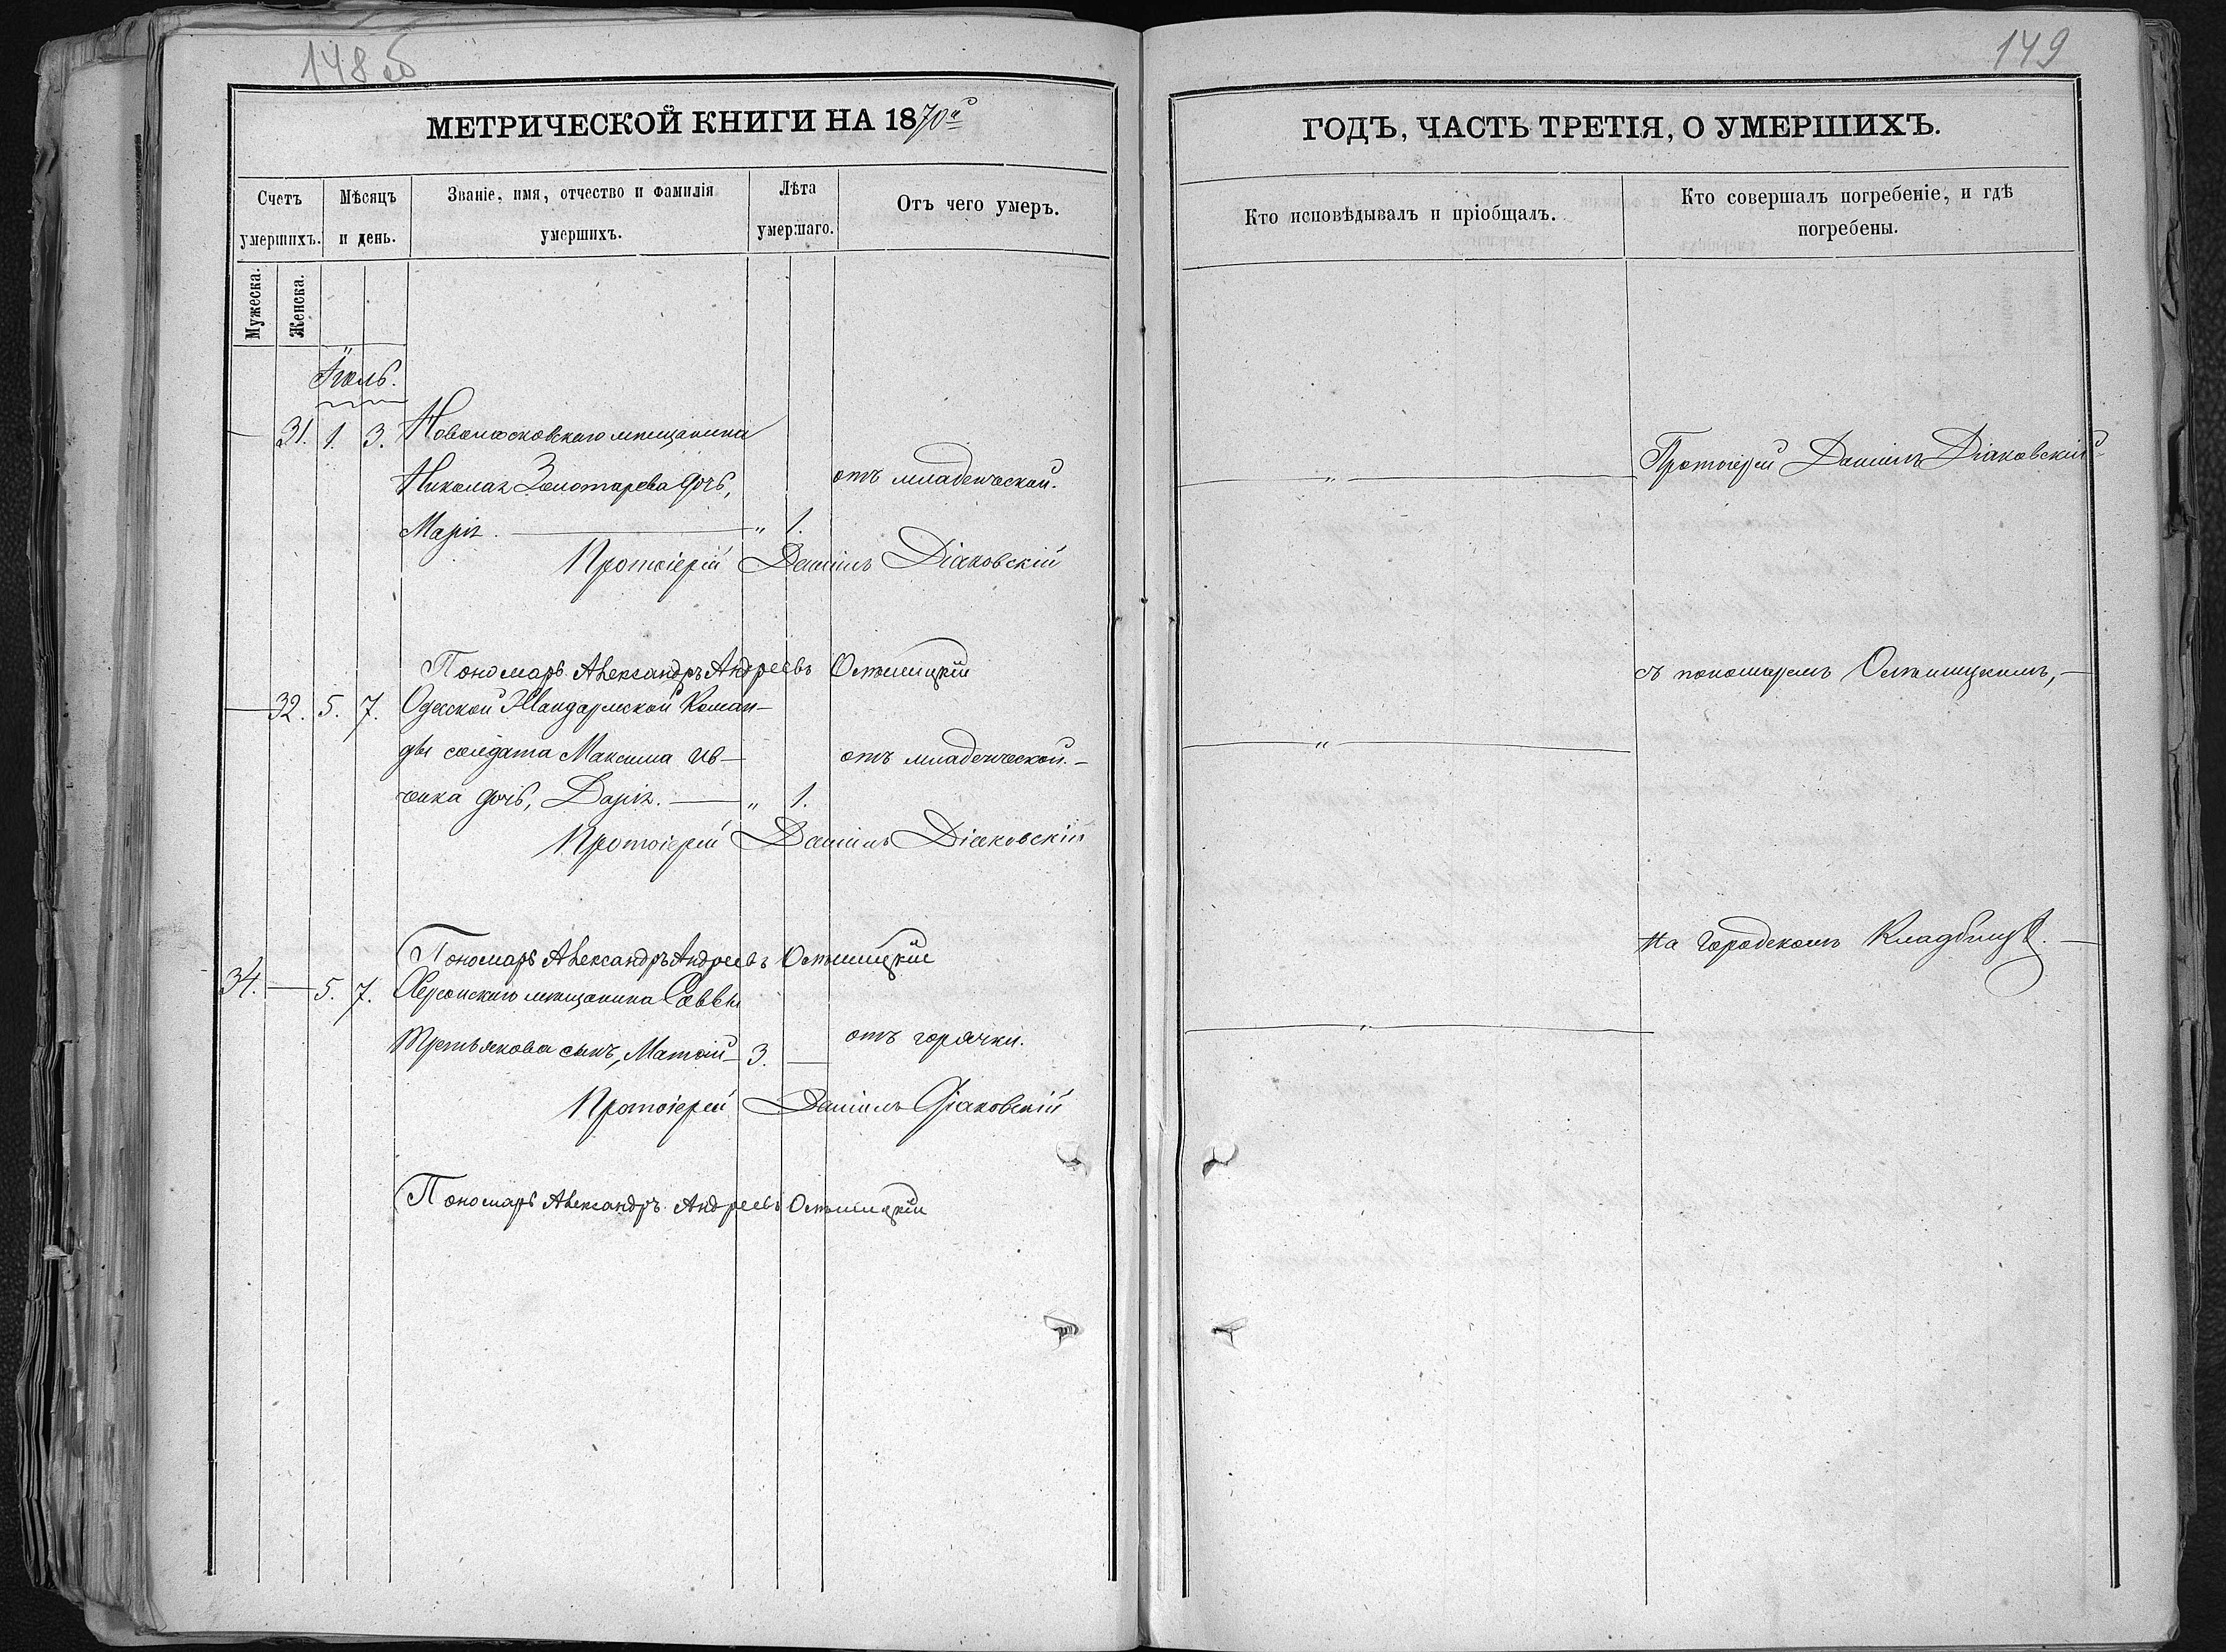 148 об
МЕТРИЧЕСКОЙ КНИГИ НА 1870й
Счетъ умершихъ.
Мѣсяцъ и день.
Званіе, имя, отчество и фамилія умершихъ.
Лѣта умершаго.
Отъ чего умеръ.
Мужеска.
Женска.
Іюль.
— 31. 1. 3. Новомосковскаго мѣщанина
Николая Золотарева дочь, отъ младенческой.
Марія. — „ 1.
Протоіерей Даніилъ Діаковскій
Пономарь Александръ Андреевъ
— 32. 5. 7. Одесской Жандармской Коман-
ды солдата Максима Ив- отъ младенческой. —
ченка дочь, Дарія. — „ 1.
Протоіерей Даніилъ Діаковскій
Пономарь Александръ Андреевъ
34. — 5. 7. Херсонскаго мѣщанина Саввы
Третьякова сынъ, Матѳій — 3. — отъ горячки.
Протоіерей Даніилъ Діаковскій
Пономарь Александръ Андреевъ
149
ГОДЪ, ЧАСТЬ ТРЕТІЯ, О УМЕРШИХЪ.
Кто исповѣдывалъ и пріобщалъ.
Кто совершалъ погребеніе, и гдѣ
погребены.
— „ — Протоіерей Даніилъ Діаковскій
съ пономаремъ
— „ —
на городскомъ Кладбищѣ. —
— „ —